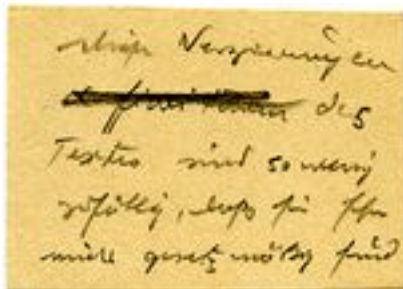 diese Verzierungen
des
Textes sind so wenig
zufällig, daß sie
gesetzmäßig sind